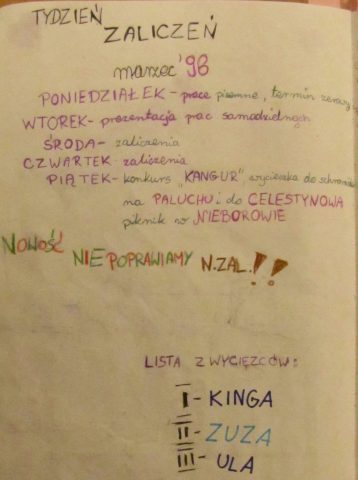 TYDZIEŃ
ZALICZEŃ
marzec '98
PONIEDZIAŁEK - prace pisemne, termin zerowy
WTOREK - prezentacja prac samodzielnych
ŚRODA - zaliczenia
CZWARTEK - zaliczenia
PIĄTEK - konkurs „KANGUR", wycieczka do schroniska
na PALUCHU i do CELESTYNOWA
piknik w NIEBOROWIE
NOWOŚĆ NIE POPRAWIAMY N.ZAL.!!
LISTA ZWYCIĘZCÓW:
I - KINGA
II - ZUZA
III - ULA